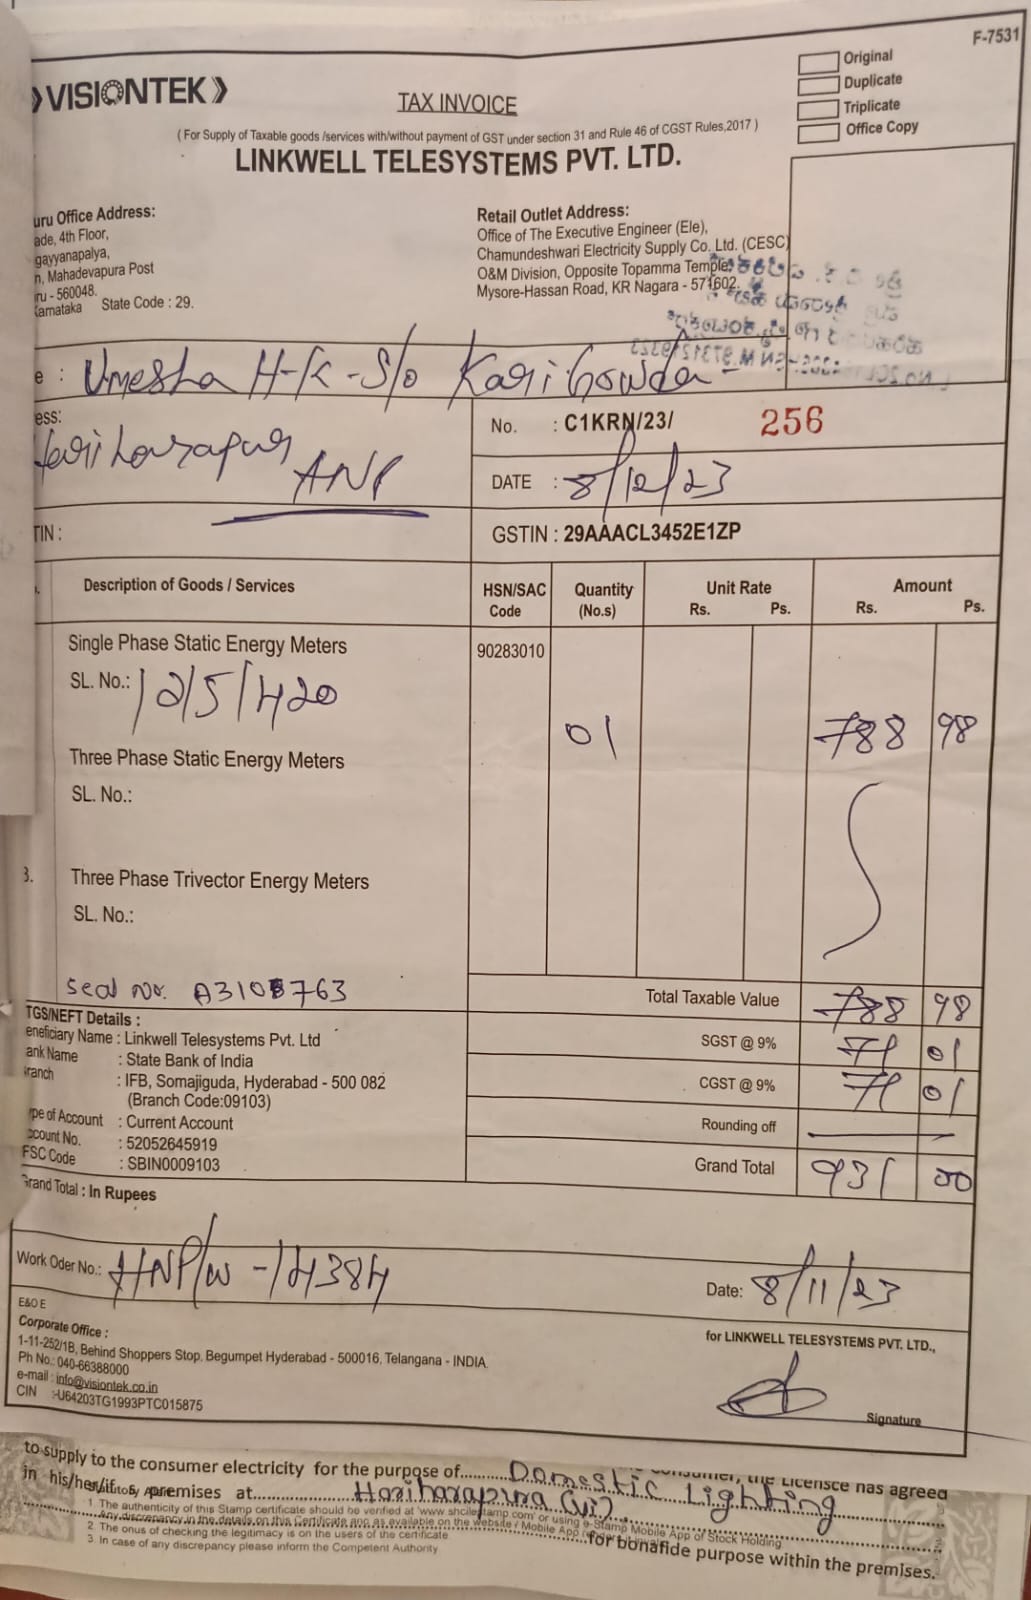 F-7531
VISIONTEK
TAX INVOICE
Original
Duplicate
Triplicate
Office Copy
( For Supply of Taxable goods /services with/without payment of GST under section 31 and Rule 46 of CGST Rules,2017 )
LINKWELL TELESYSTEMS PVT. LTD.
uru Office Address:
ade, 4th Floor,
gayyanapalya,
n, Mahadevapura Post
ru - 560048.
Karnataka State Code : 29.
Retail Outlet Address:
Office of The Executive Engineer (Ele),
Chamundeshwari Electricity Supply Co. Ltd. (CESC)
O&M Division, Opposite Topamma Temple,
Mysore-Hassan Road, KR Nagara - 571602.
e : Umesha H-K - S/o Karigowda
ess:
No. : C1KRN/23/ 256
DATE : 8/12/23
TIN :
GSTIN : 29AAACL3452E1ZP
Description of Goods / Services HSN/SAC Code Quantity (No.s) Unit Rate Rs. Ps. Amount Rs. Ps.
Single Phase Static Energy Meters 90283010
SL. No.:
01 788 98
Three Phase Static Energy Meters
SL. No.:
3. Three Phase Trivector Energy Meters
SL. No.:
Seal No.
Total Taxable Value 788 98
SGST @ 9% 71 01
CGST @ 9% 71 01
Rounding off
Grand Total 931 00
TGS/NEFT Details :
eneficiary Name : Linkwell Telesystems Pvt. Ltd
ank Name : State Bank of India
ranch : IFB, Somajiguda, Hyderabad - 500 082
(Branch Code:09103)
pe of Account : Current Account
ccount No. : 52052645919
FSC Code : SBIN0009103
Grand Total : In Rupees
Work Oder No.: HNP/W - 14384
Date: 8/11/23
E&O E
Corporate Office :
1-11-252/1B, Behind Shoppers Stop, Begumpet Hyderabad - 500016, Telangana - INDIA.
Ph No.: 040-66388000
e-mail : info@visiontek.co.in
CIN :-U64203TG1993PTC015875
for LINKWELL TELESYSTEMS PVT. LTD.,
Signature
consumer, the Licensce has agreed
to supply to the consumer electricity for the purpose of Domestic Lighting
in his/her/if premises at Hariharapura
1. The authenticity of this Stamp certificate should be verified at 'www.shcilestamp.com' or using e-Stamp Mobile App of Stock Holding.
Any discrepancy in the details on this Certificate and as available on the website / Mobile App
2. The onus of checking the legitimacy is on the users of the certificate
3. In case of any discrepancy please inform the Competent Authority
for bonafide purpose within the premises.